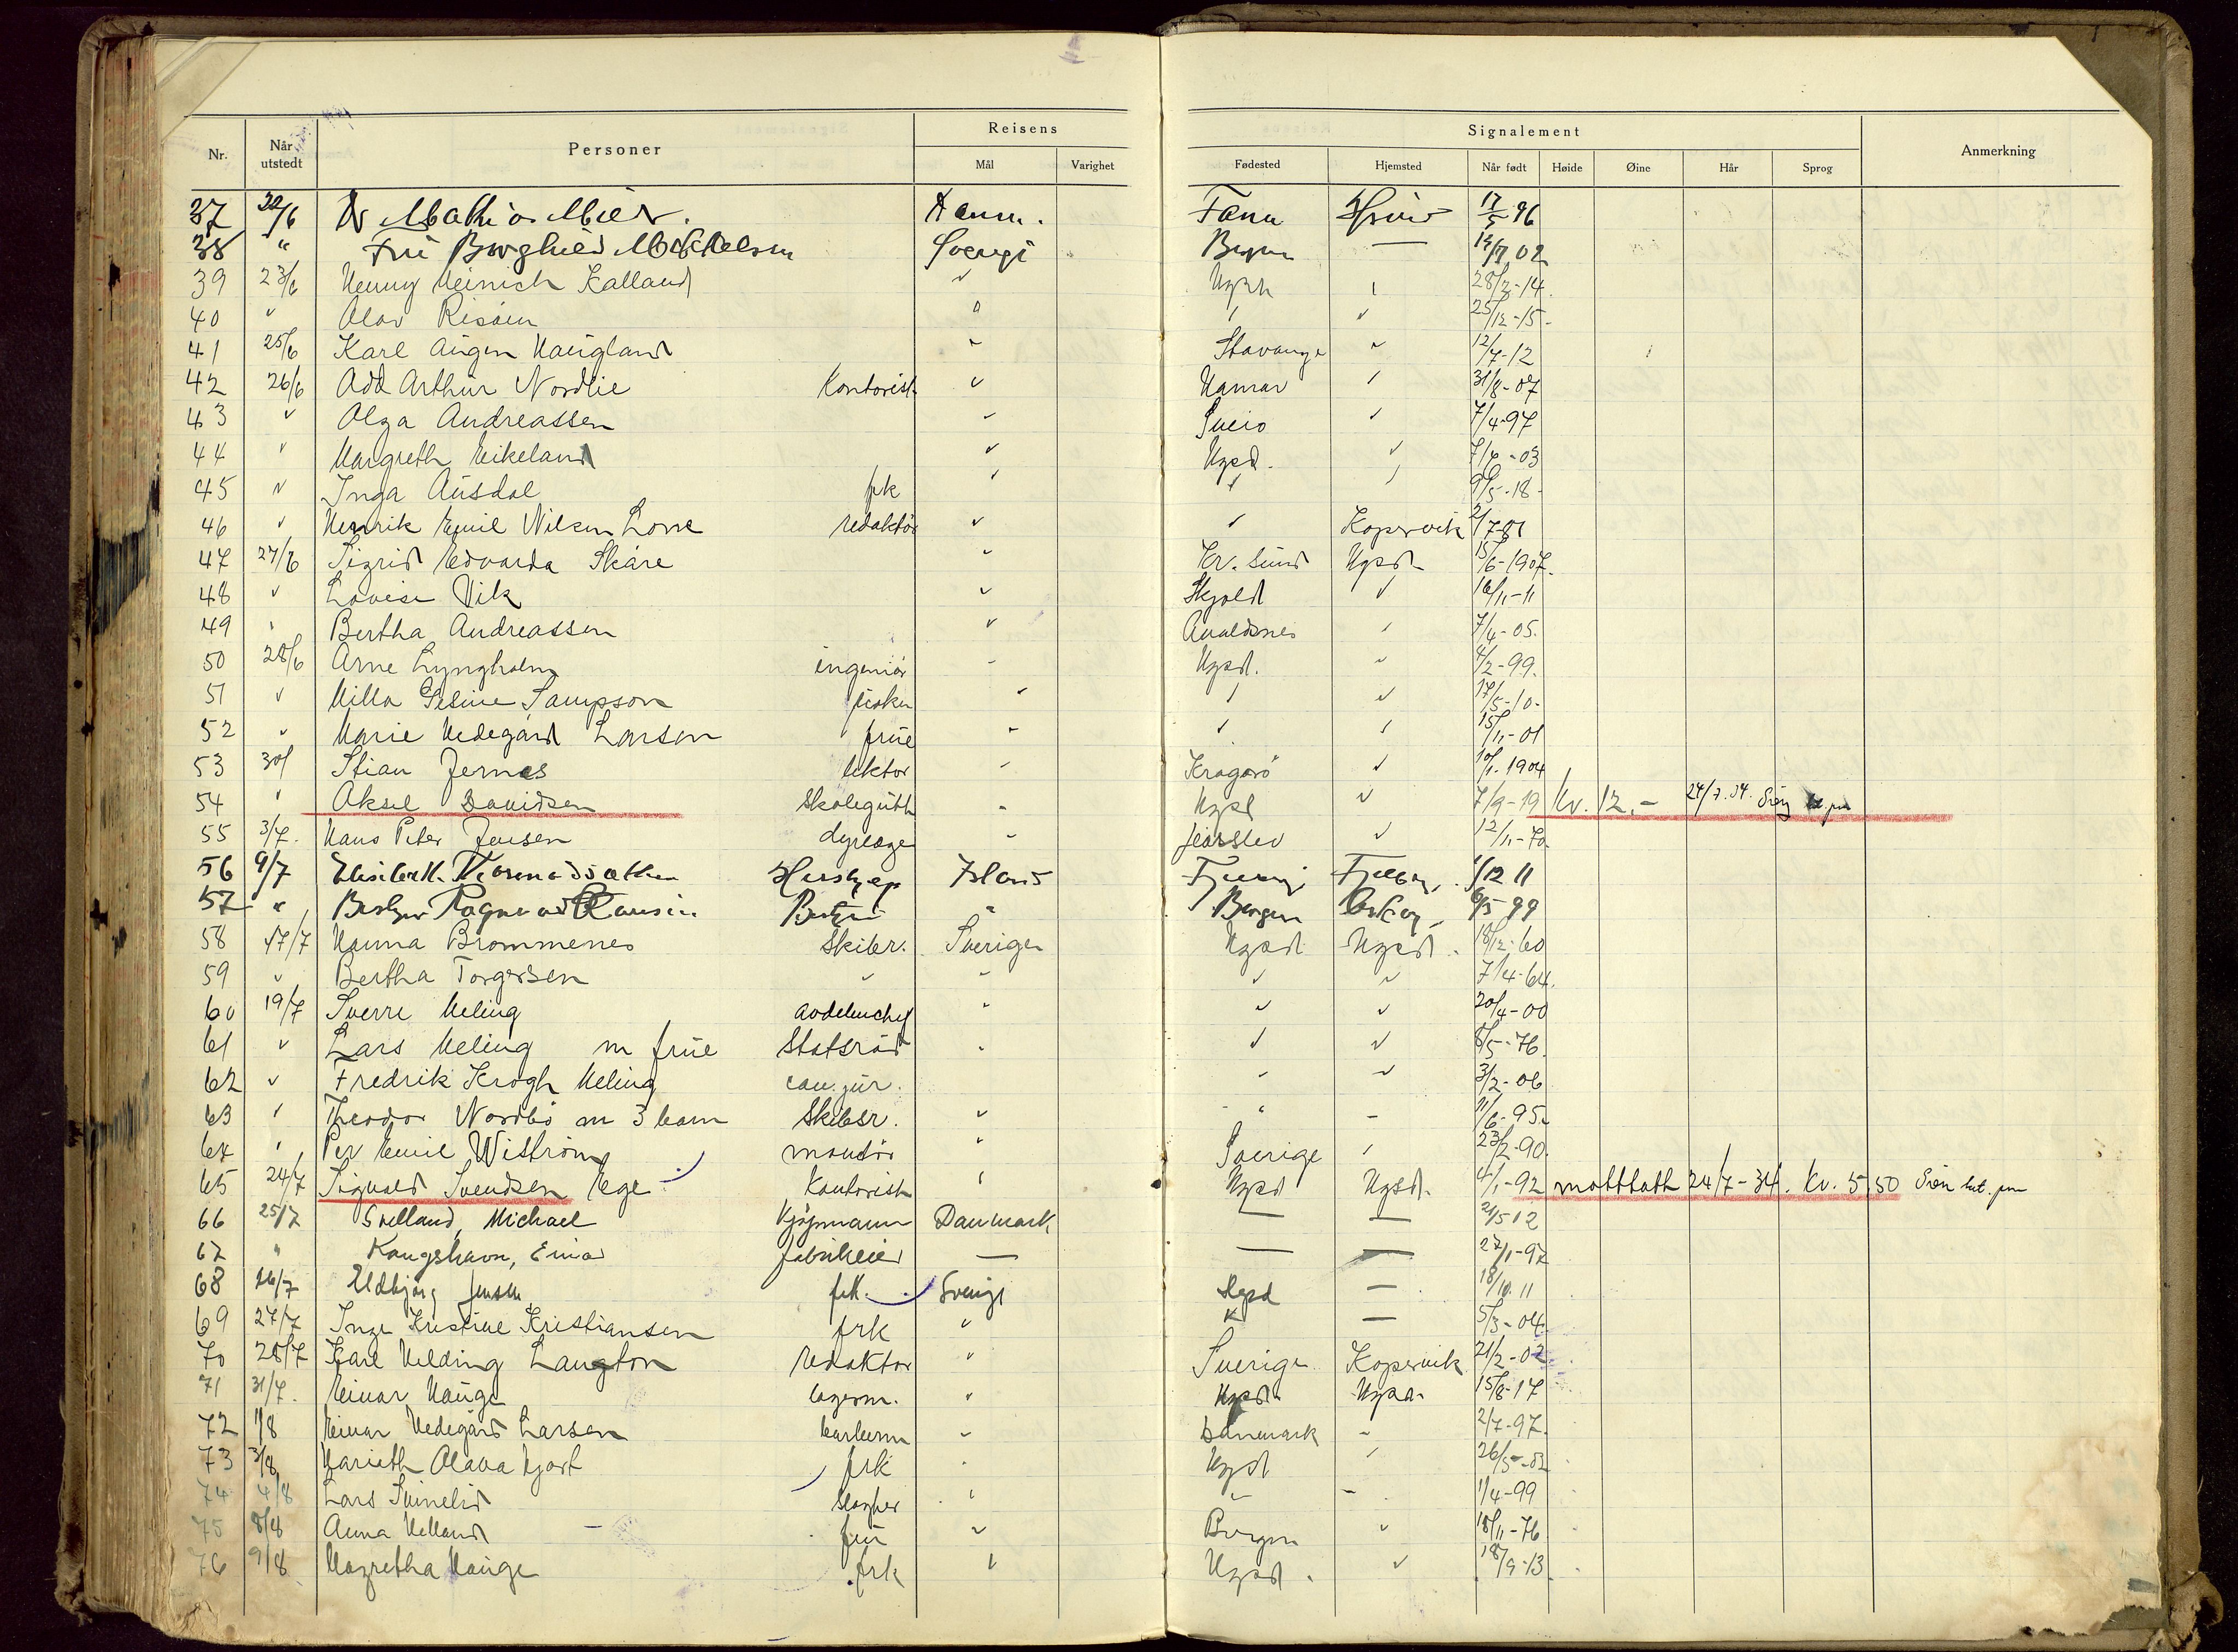 Nr. Når utstedt Personer Reisens Mål Varighet Signalement Fødested Hjemsted Når født Høide Øine Hår Sprog Anmerkning
37 22/6 Danm. 17/5 96
38 " Fru Borghild Sverige Bergen — 02
39 23/6 Henny Heinich Kalland " 28/2-14
40 " Olav Risøen " " " 25/12-15
41 25/6 Karl Haugland " Stavanger " 12/7-12
42 26/6 Odd Arthur Nordlie Kontorist " Hamar " 31/8-07
43 " Olga Andreassen " Sveio " 7/4-97
44 " Margreth Eikeland " Hgsd. " 03
45 " Inga Ausdal frk " " " 9/5-18
46 " Henrik Emil Nilsen redaktør " " Kopervik 2/7-01
47 27/6 Sigrid Edvarda Skåre " Kr. Sund Hgsd. 15/6-1907
48 " Lovise Vik " Skjold " 16/11-11
49 " Bertha Andreassen " Avaldsnes " 7/4-05.
50 28/6 Arne Lyngholm ingeniør " Hgsd. " 4/2-99.
51 " Milla Gesine Sampson frøken " " " 17/5-10
52 " Marie Hedegård Larsen frue " " " 15/11-01
53 30/ Stian Jernes lektor " Kragerø " 10/1-1904
54 " Aksel Davidsen Skolegutt " Hgsd " 7/9-19 Kv. 12.- 24/7.34.
55 3/7. Hans Peter Jensen dyrlæge " Jerslev " 12/11-70
56 9/7 Elisabeth Island 1/12 11
57 " Ragnvad Bergen 99
58 17/7 Hanna Brommenes Skibsr. Sverige Hgsd Hgsd. 18/12-60
59 " Bertha Torgersen " " " " 7/4-64.
60 19/7 Sverre Meling avdelinchef " " " 20/4-00
61 " Lars Meling m frue Statsråd " " " 8/5-76.
62 " Fredrik Krogh Meling can. jur. " " 3/2-06
63 " Theodor Nordbø m 3 barn Skibsr. " " - 11/6-95.
64 " Per Emil Wistrøm montør " Sverige " 23/2-90.
65 24/7 Sigvald Svendsen Ege Kontorist " Hgsd Hgsd. 4/1-92 mottatt 24/7-34. Kv. 5.50
66 25/7 Michael Kjøpmann Danmark — — 21/5 12
67 " Kongshavn, Einar fabrikeier — — — 27/1-97
68 26/7 Eldbjørg Jensen frk. Sverige Hgsd — 18/10 11
69 27/7 Inga Kristine Kristiansen frk " " — 5/3-04.
70 28/7 Karl Helding Langton redaktør " Sverige Kopervik 21/2-02
71 31/7. Einar Hauge lagerm. " Hgsd. Hgsd. 15/8-17
72 1/8 Einar Hedegård Larsen " Danmark " 2/7-97.
73 3/8 frk " Hgsd "
74 4/8 Lars " " - 1/4-99
75 8/8 Anna Helland fru " Bergen " 18/11-76
76 9/8 Margretha Hauge frk " Hgsd. " 18/9-13